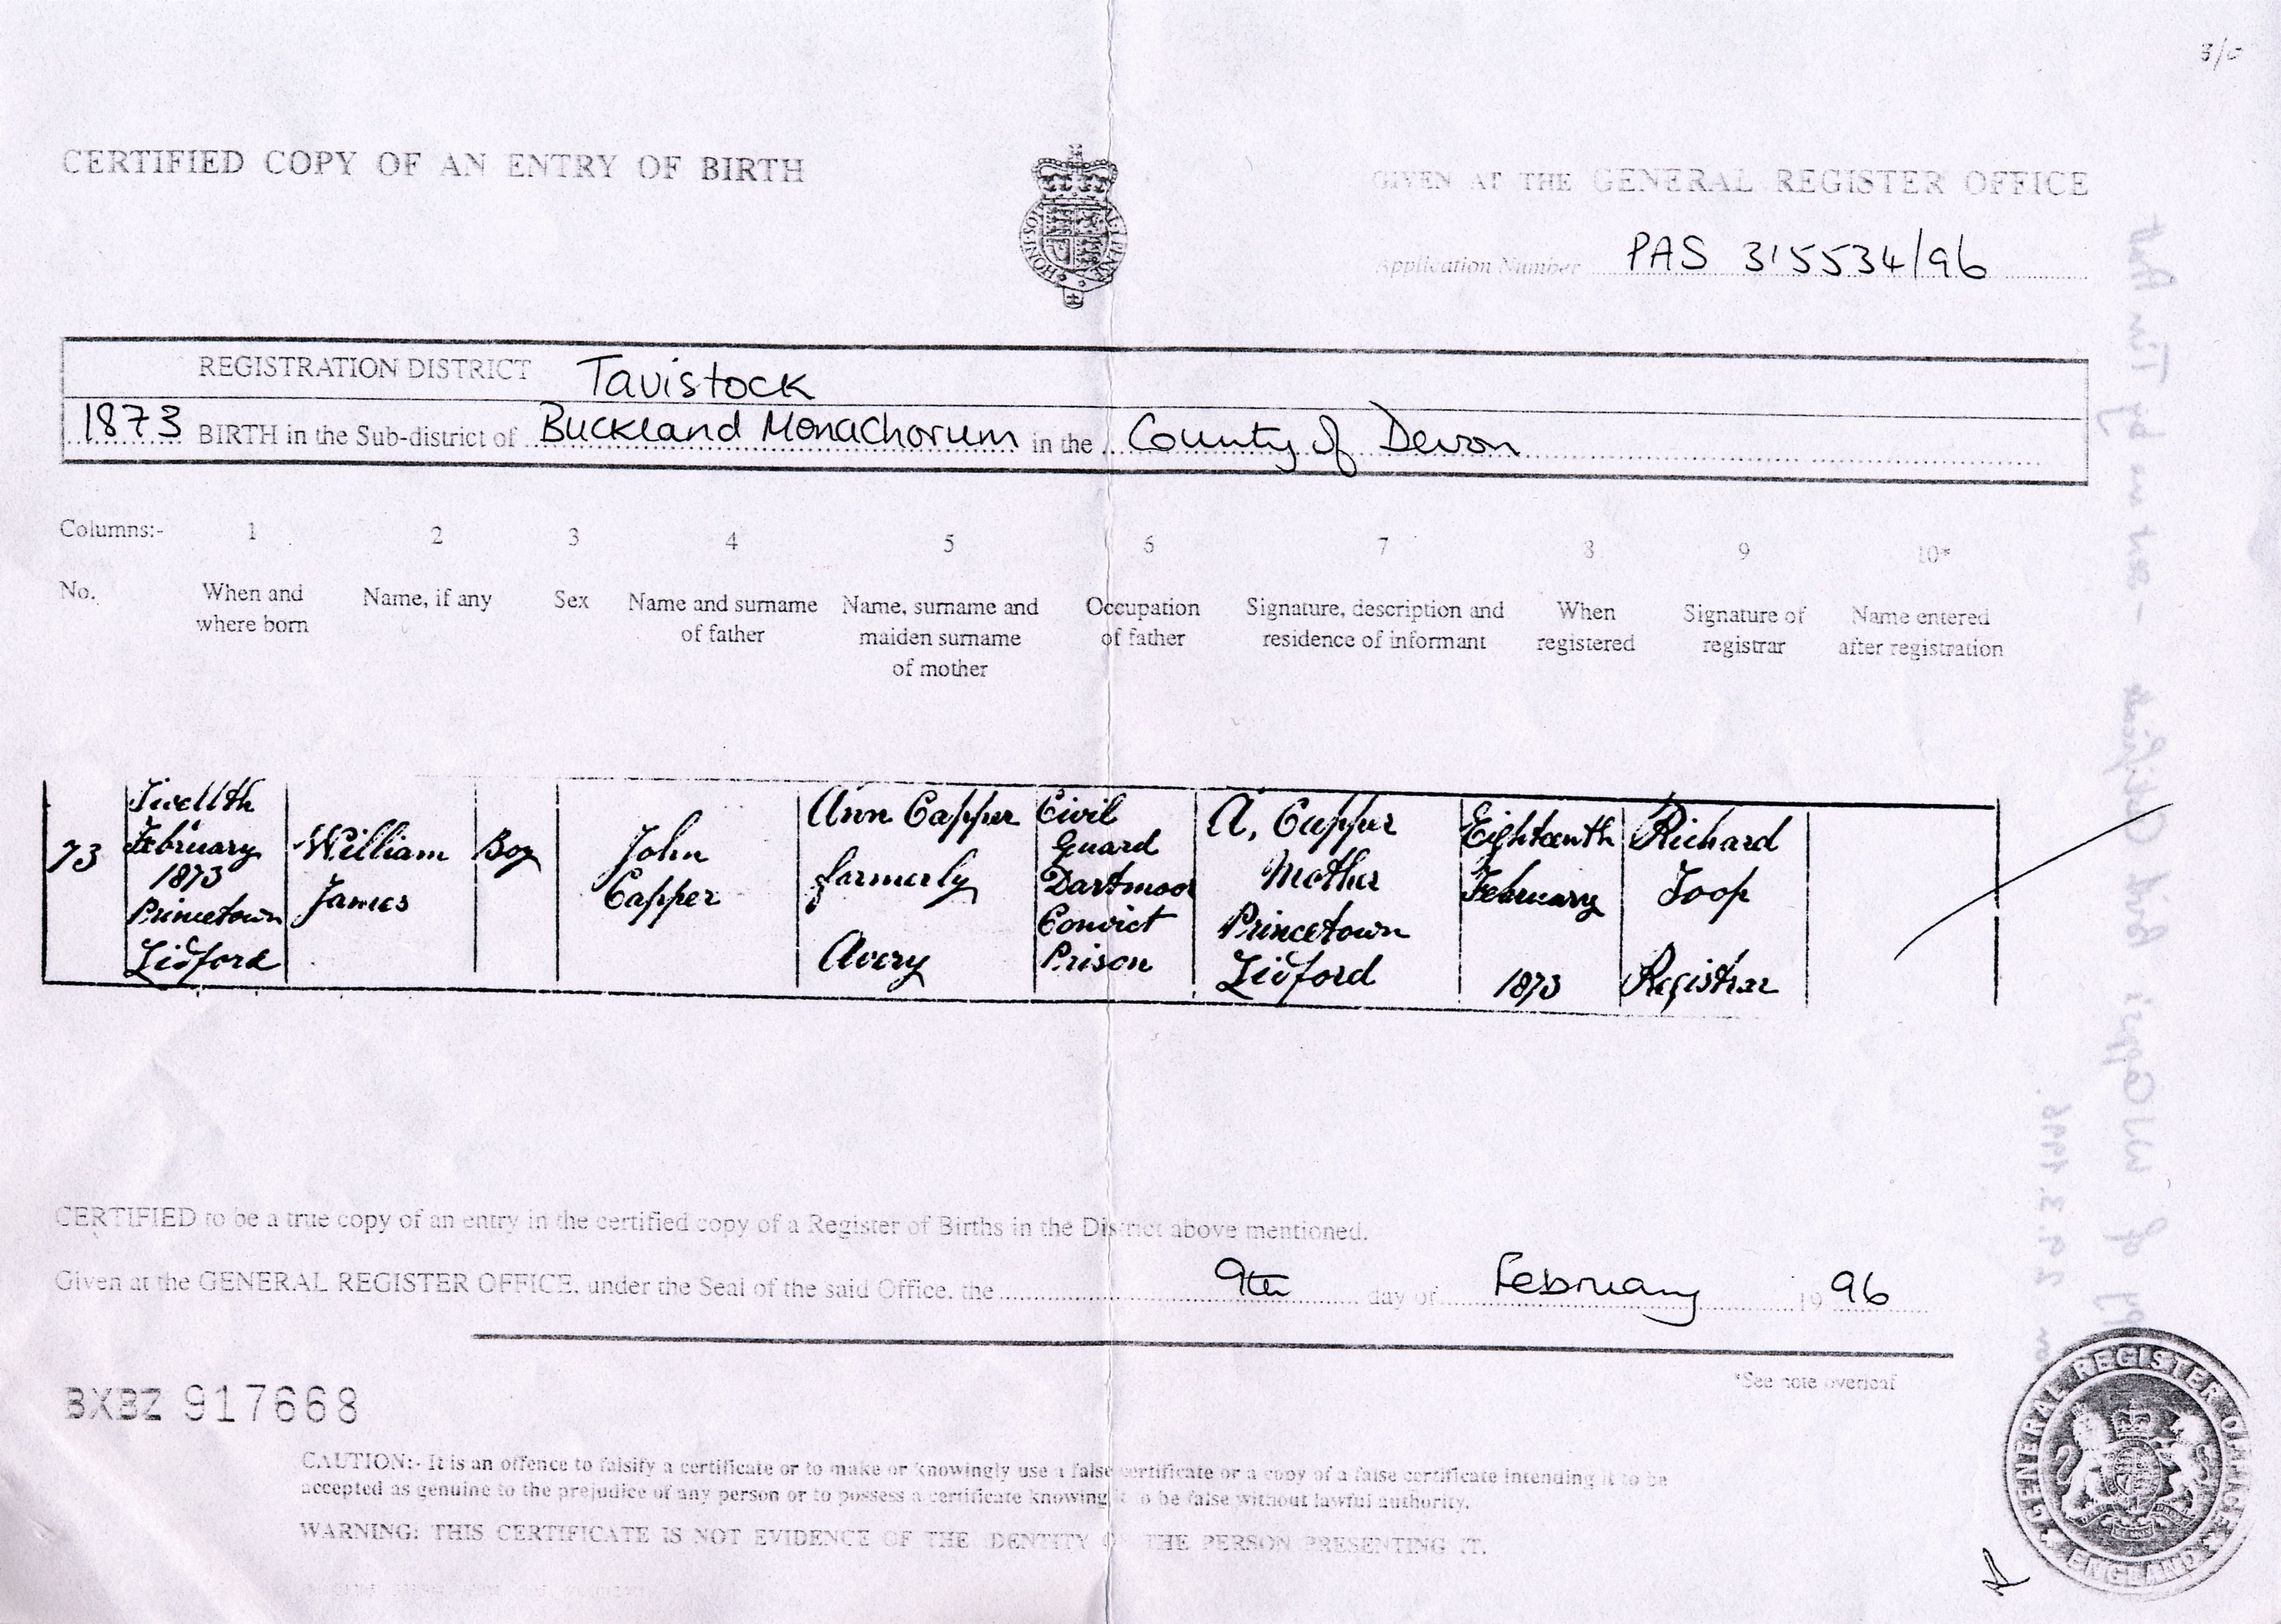 CERTIFIED COPY OF AN ENTRY OF BIRTH
GIVEN AT THE GENERAL REGISTER OFFICE
Application Number PAS 315534/96
REGISTRATION DISTRICT Tavistock
1873 BIRTH in the Sub-district of Buckland Monachorum in the County of Devon
Columns:- 1 2 3 4 5 6 7 8 9 10*
No. When and where born
Name, if any
Sex
Name and surname of father
Name, surname and maiden surname of mother
Occupation of father
Signature, description and residence of informant
When registered
Signature of registrar
Name entered after registration
73
Twelfth
February
1873
Princetown
Lidford
William
James
Boy
John
Capper
Ann Capper
formerly
Avery
Civil
Guard
Dartmoor
Convict
Prison
A. Capper
Mother
Princetown
Lidford
Eighteenth
February
1873
Richard
Toop
Registrar
CERTIFIED to be a true copy of an entry in the certified copy of a Register of Births in the District above mentioned.
Given at the GENERAL REGISTER OFFICE, under the Seal of the said Office, the 9th day of February 19 96
*See note overleaf
BXBZ 917668
CAUTION:- It is an offence to falsify a certificate or to make or knowingly use a false certificate or a copy of a false certificate intending it to be
accepted as genuine to the prejudice of any person or to possess a certificate knowing it to be false without lawful authority.
WARNING: THIS CERTIFICATE IS NOT EVIDENCE OF THE IDENTITY OF THE PERSON PRESENTING IT.
GENERAL REGISTER OFFICE
ENGLAND